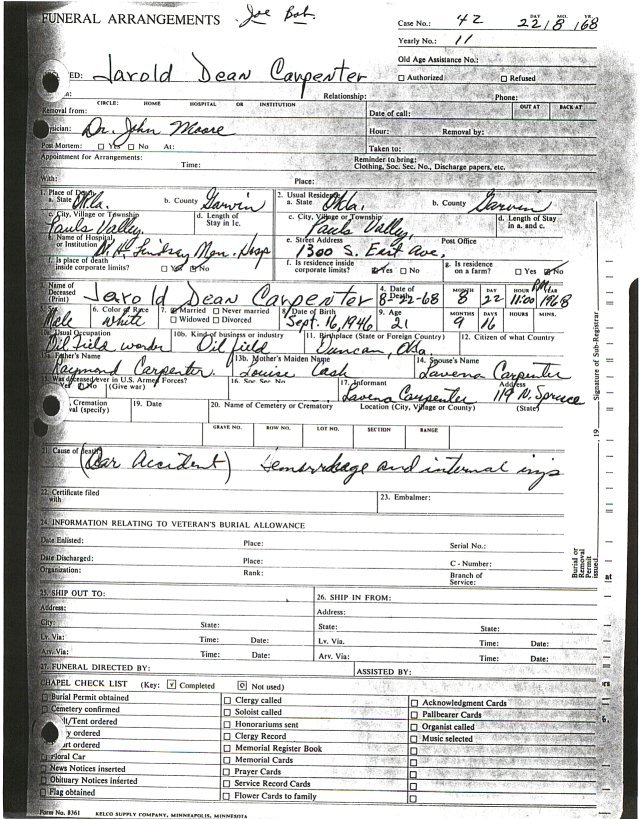 FUNERAL ARRANGEMENTS Joe Bob.
Case No.: 42 DAY MO. YR. 22 | 8 | 68
Yearly No.: 11
Old Age Assistance No.:
☐ Authorized ☐ Refused
ED: Jarold Dean Carpenter
Relationship: Phone:
CIRCLE: HOME HOSPITAL OR INSTITUTION OUT AT BACK AT
Removal from: Date of call:
Dr. John Moore Hour: Removal by:
Post Mortem: ☐ Yes ☐ No At: Taken to:
Appointment for Arrangements: Reminder to bring:
Time: Clothing, Soc. Sec. No., Discharge papers, etc.
With: Place:
1. Place of Death 2. Usual Residence
a. State Okla. b. County Garvin a. State Okla. b. County Garvin
c. City, Village or Township d. Length of Stay in 1c. c. City, Village or Township d. Length of Stay in a. and c.
Pauls Valley. Pauls Valley,
e. Name of Hospital or Institution Lindsay Men. Hosp e. Street Address Post Office
1300 S. East Ave,
f. Is place of death inside corporate limits? ☐ Yes ☐ No f. Is residence inside corporate limits? ☑ Yes ☐ No g. Is residence on a farm? ☐ Yes ☑ No
3. Name of Deceased (Print) Jerold Dean Carpenter 4. Date of Death 8-22-68 MONTH 8 DAY 22 HOUR 11:00 PM 1968
5. Sex Male 6. Color or Race White 7. ☑ Married ☐ Never married ☐ Widowed ☐ Divorced 8. Date of Birth Sept. 16, 1946 9. Age 21 MONTHS 9 DAYS 16 HOURS MINS.
Usual Occupation 10b. Kind of business or industry 11. Birthplace (State or Foreign Country) 12. Citizen of what Country
Oil field worker Oil field Duncan, Okla.
13a. Father's Name 13b. Mother's Maiden Name 14. Spouse's Name
Raymond Carpenter. Louise Cash Lavena Carpenter
15. Was deceased ever in U.S. Armed Forces? 16. Soc. Sec. No. 17. Informant Address
Yes No (Give war) Lavena Carpenter 119 N. Spruce
Cremation 19. Date 20. Name of Cemetery or Crematory Location (City, Village or County) (State)
val (specify)
GRAVE NO. ROW NO. LOT NO. SECTION RANGE
21. Cause of death
(Car Accident) Hemorrhage and internal injs
22. Certificate filed with 23. Embalmer:
24. INFORMATION RELATING TO VETERAN'S BURIAL ALLOWANCE
Date Enlisted: Place: Serial No.:
Date Discharged: Place: C - Number:
Organization: Rank: Branch of Service:
25. SHIP OUT TO: 26. SHIP IN FROM:
Address: Address:
City: State: State: State:
Lv. Via: Time: Date: Lv. Via. Time: Date:
Arv. Via: Time: Date: Arv. Via: Time: Date:
27. FUNERAL DIRECTED BY: ASSISTED BY:
CHAPEL CHECK LIST (Key: ☑ Completed Not used)
☐ Burial Permit obtained ☐ Clergy called ☐ Acknowledgment Cards
Cemetery confirmed ☐ Soloist called ☐ Pallbearer Cards
lt/Tent ordered ☐ Honorariums sent ☐ Organist called
y ordered ☐ Clergy Record ☐ Music selected
rt ordered ☐ Memorial Register Book ☐
Floral Car ☐ Memorial Cards ☐
News Notices inserted ☐ Prayer Cards ☐
Obituary Notices inserted ☐ Service Record Cards ☐
☐ Flag obtained ☐ Flower Cards to family ☐
Form No. 8361 KELCO SUPPLY COMPANY, MINNEAPOLIS, MINNESOTA
Signature of Sub-Registrar
, 19
Burial or Removal Permit issued
at